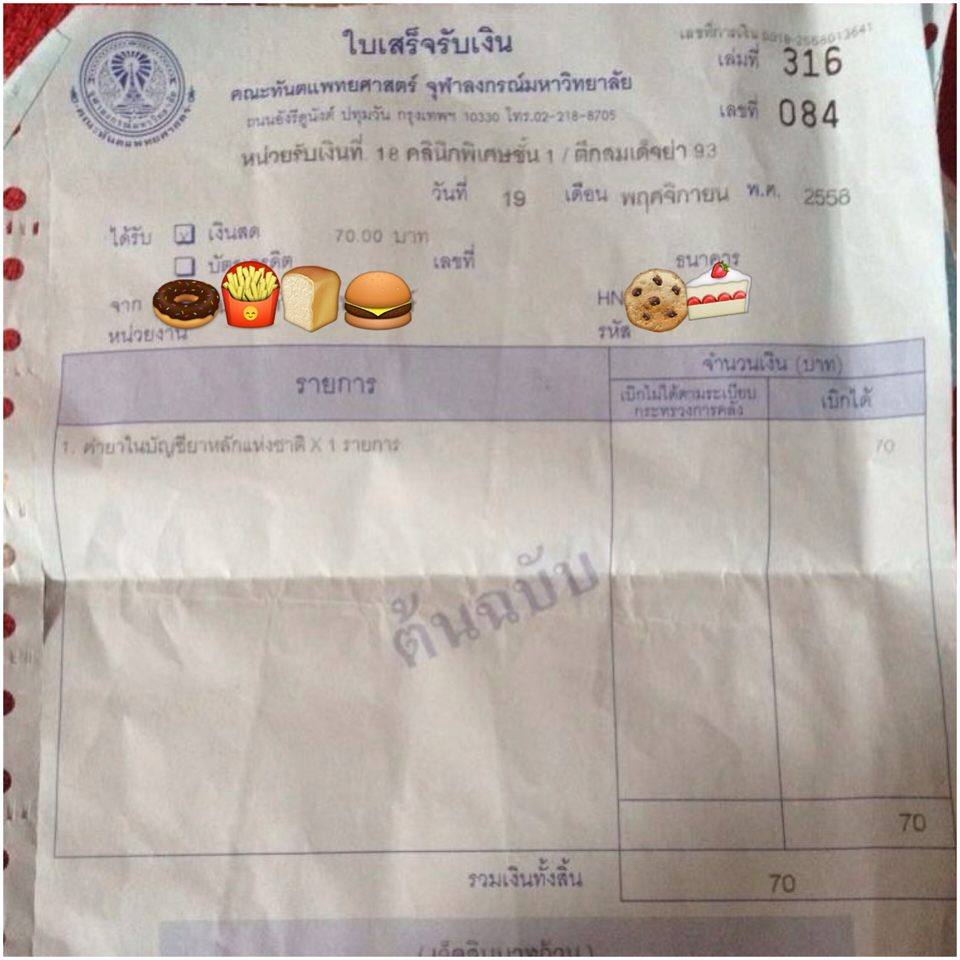 ใบเสร็จรับเงิน
คณะทันตแพทยศาสตร์ จุฬาลงกรณ์มหาวิทยาลัย
ถนนอังรีดูนังต์ ปทุมวัน กรุงเทพฯ 10330 โทร.02-218-8705
เล่มที่ 316
เลขที่ 084
หน่วยรับเงินที่ 18 คลินิกพิเศษชั้น 1 / ตึกสมเด็จย่า 93
วันที่ 19 เดือน พฤศจิกายน พ.ศ. 2558
ได้รับ เงินสด 70.00 บาท
เลขที่ ธนาคาร
จาก HN
หน่วยงาน รหัส
รายการ จำนวนเงิน (บาท)
เบิกไม่ได้ตามระเบียบ เบิกได้
กระทรวงการคลัง
1. ค่ายาในบัญชียาหลักแห่งชาติ X 1 รายการ 70
ต้นฉบับ
70
รวมเงินทั้งสิ้น 70
(เจ็ดสิบบาทถ้วน)